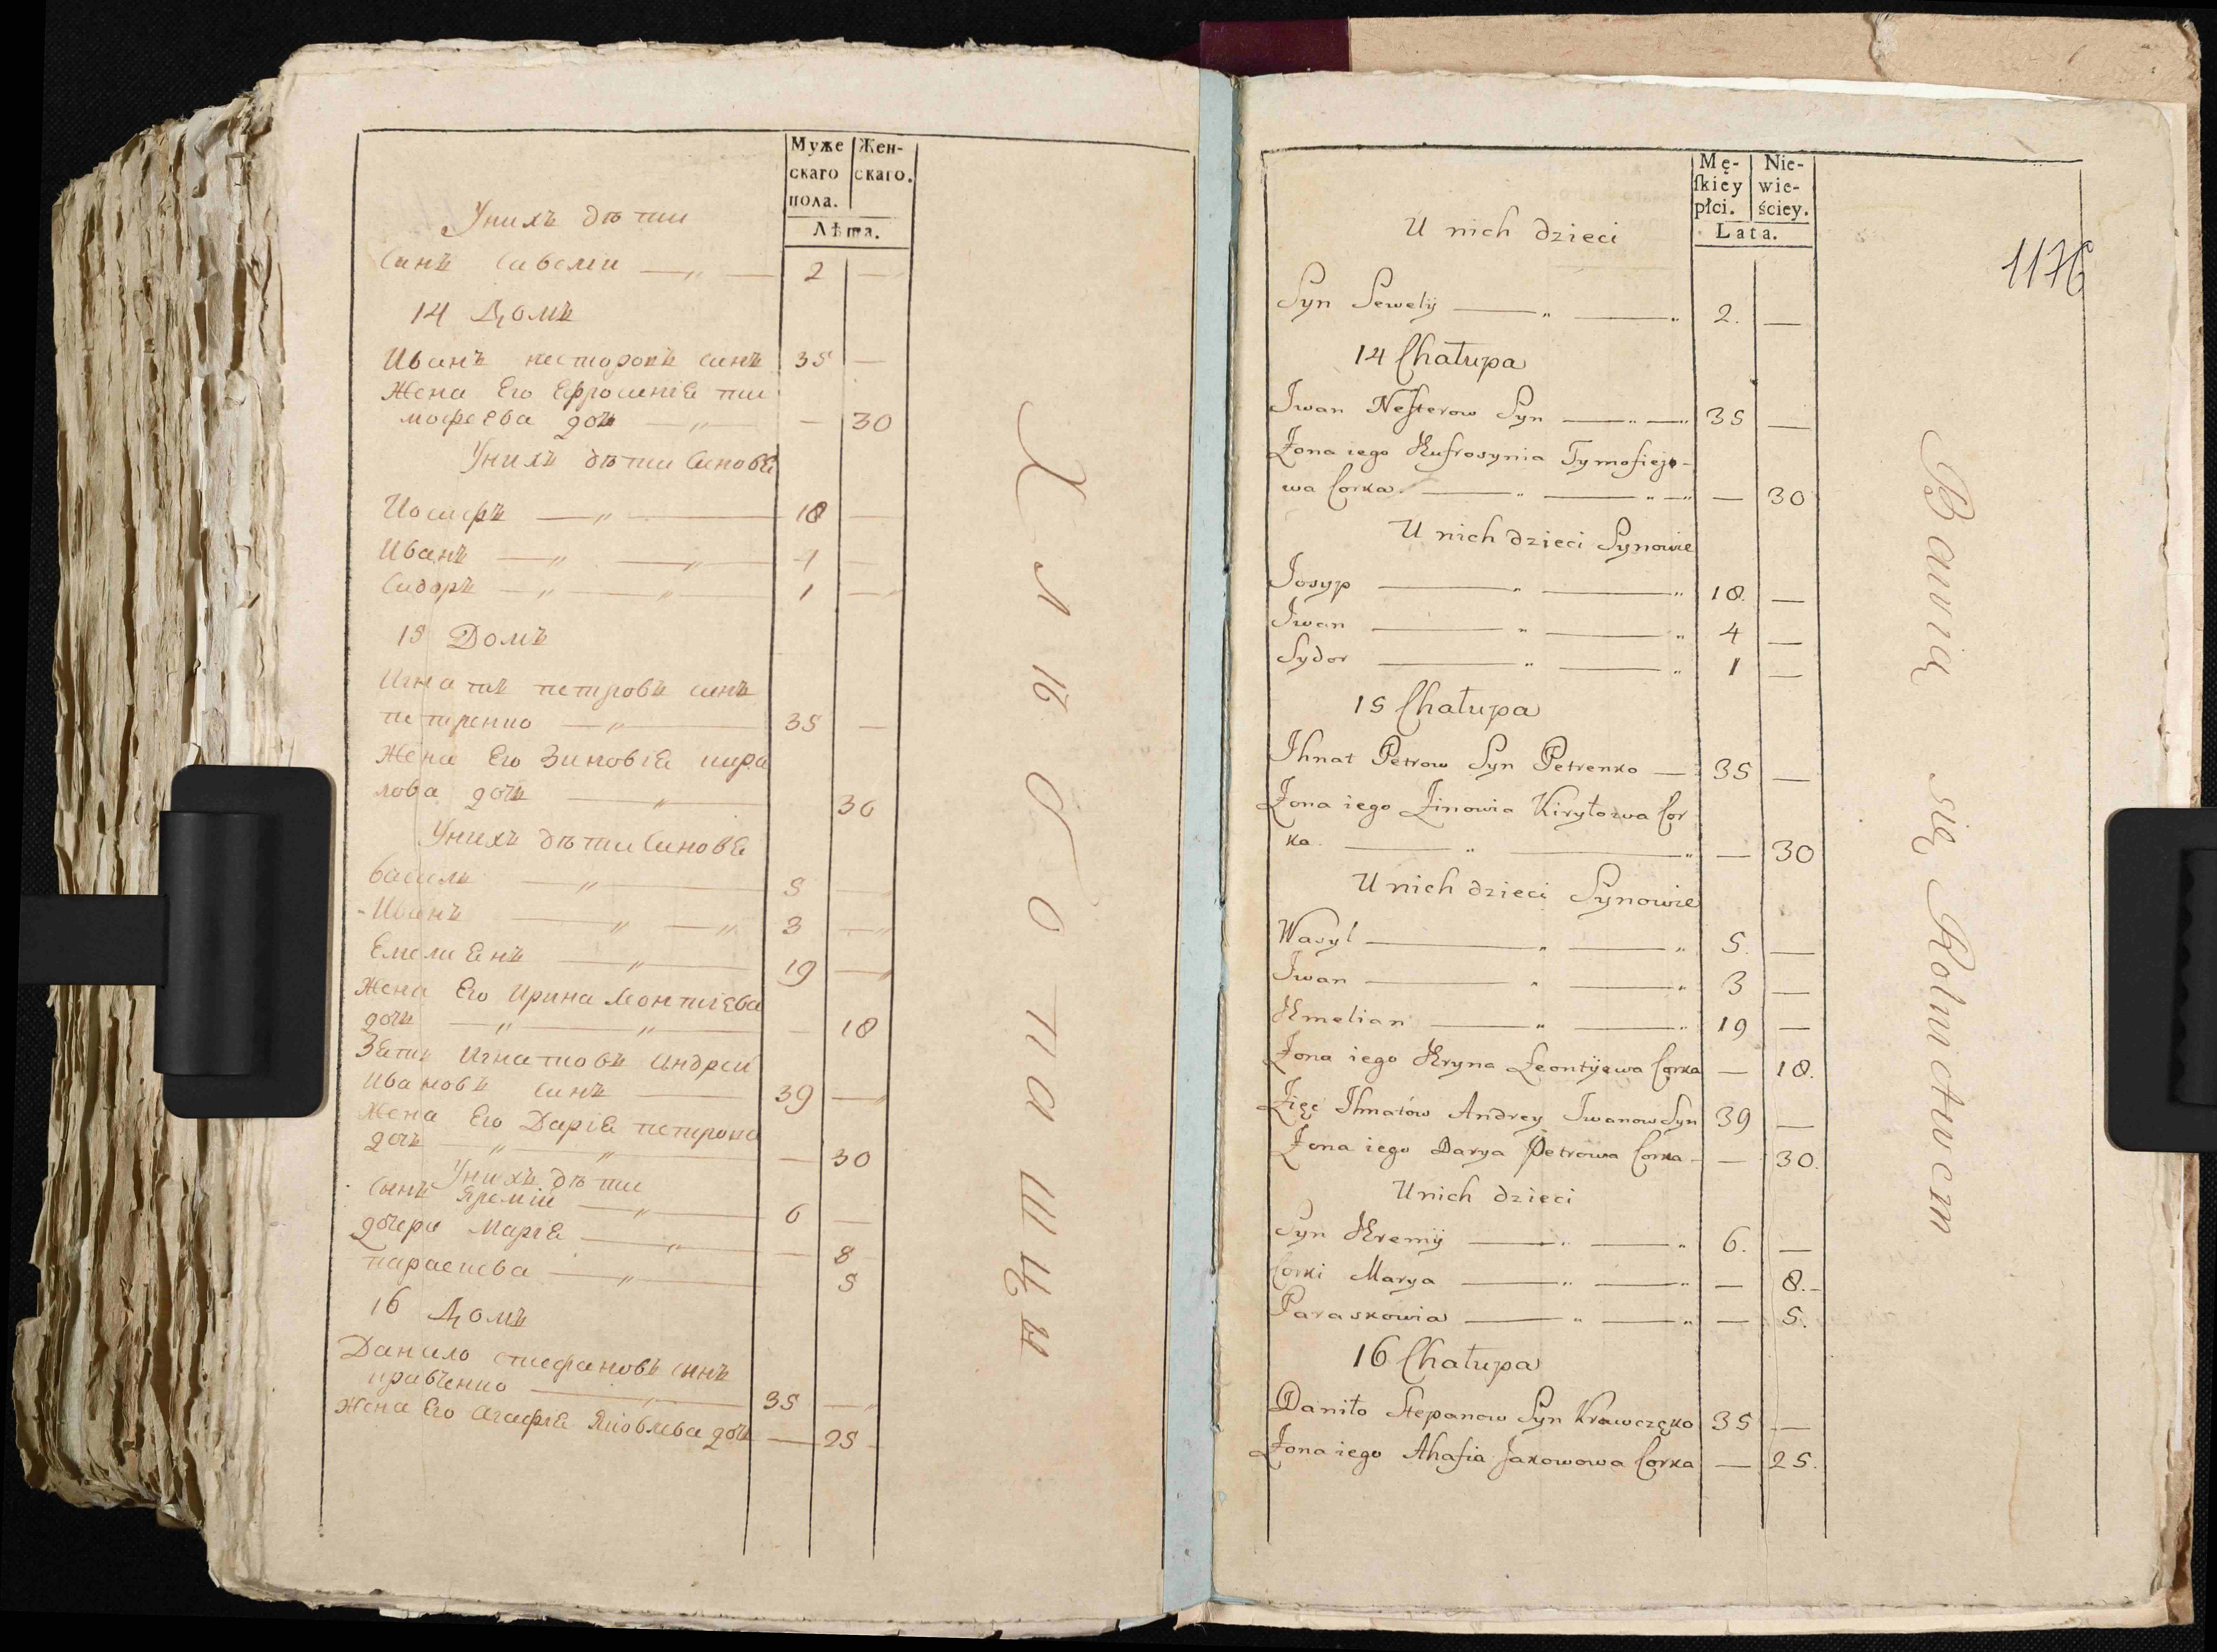 Муже
скаго
пола.
Жен-
скаго.
Лѣта.
Унихъ дѣти
Синъ Савелии 2 —
14 Домъ
Иванъ несторовъ синъ 35 —
Жена Его Ефросиніѣ ти
мофеева дочъ — 30
Унихъ дѣти Синовѣ
Иосифъ 18 —
Иванъ 4 —
Сидоръ 1 —
15 Домъ
Игнатъ петровъ синъ
петренко 35 —
Жена Его Зиновіѣ кира
лова дочъ 30
Унихъ дѣти Синовѣ
василъ 5 —
Иванъ 3 —
Емелиѣнъ 19 —
Жена Его Ирина Леонтіева
дочъ — 18
Зѣтъ Игнатовъ Андреи
Ивановъ синъ 39 —
Жена Его Даріѣ петрова
дочъ — 30
Унихъ дѣти
Сынъ Яремій 6 —
дочери Маріѣ — 8
параскева 5
16 Домъ
Данило стефановъ сынъ
кравченко 35 —
Жена Его Агафіѣ Яковлева дочъ — 25
Хлѣбопашцы
1176
Mę-
skiey
płci.
Nie-
wie-
ściey.
Lata.
U nich dzieci
Syn Sewelÿ 2. —
14 Chałupa
Iwan Nesterow Syn 35 —
Żona iego Eufrosynia Tymofieje-
wa Corka. — 30
U nich dzieci Synowie
Josyp 18. —
Iwan 4 —
Sydor 1 —
15 Chałupa
Ihnat Petrow Syn Petrenko — 35 —
Żona iego Zinowia Kiryłowa Cor
ka. — 30
U nich dzieci Synowie
Wasyl 5. —
Iwan 3 —
Emelian 19 —
Żona iego Eryna Leontÿewa Corka — 18.
Zięć Ihnatów Andrey Iwanow Syn 39 —
Żona iego Darya Petrowa Corka — 30.
U nich dzieci
Syn Eremÿ 6. —
Corki Marya — 8.
Paraskowia — 5.
16 Chałupa
Daniło Stepanow Syn Krawczęko 35 —
Żona iego Ahafia Jakowowa Corka — 25.
Bawią się Rolnictwem